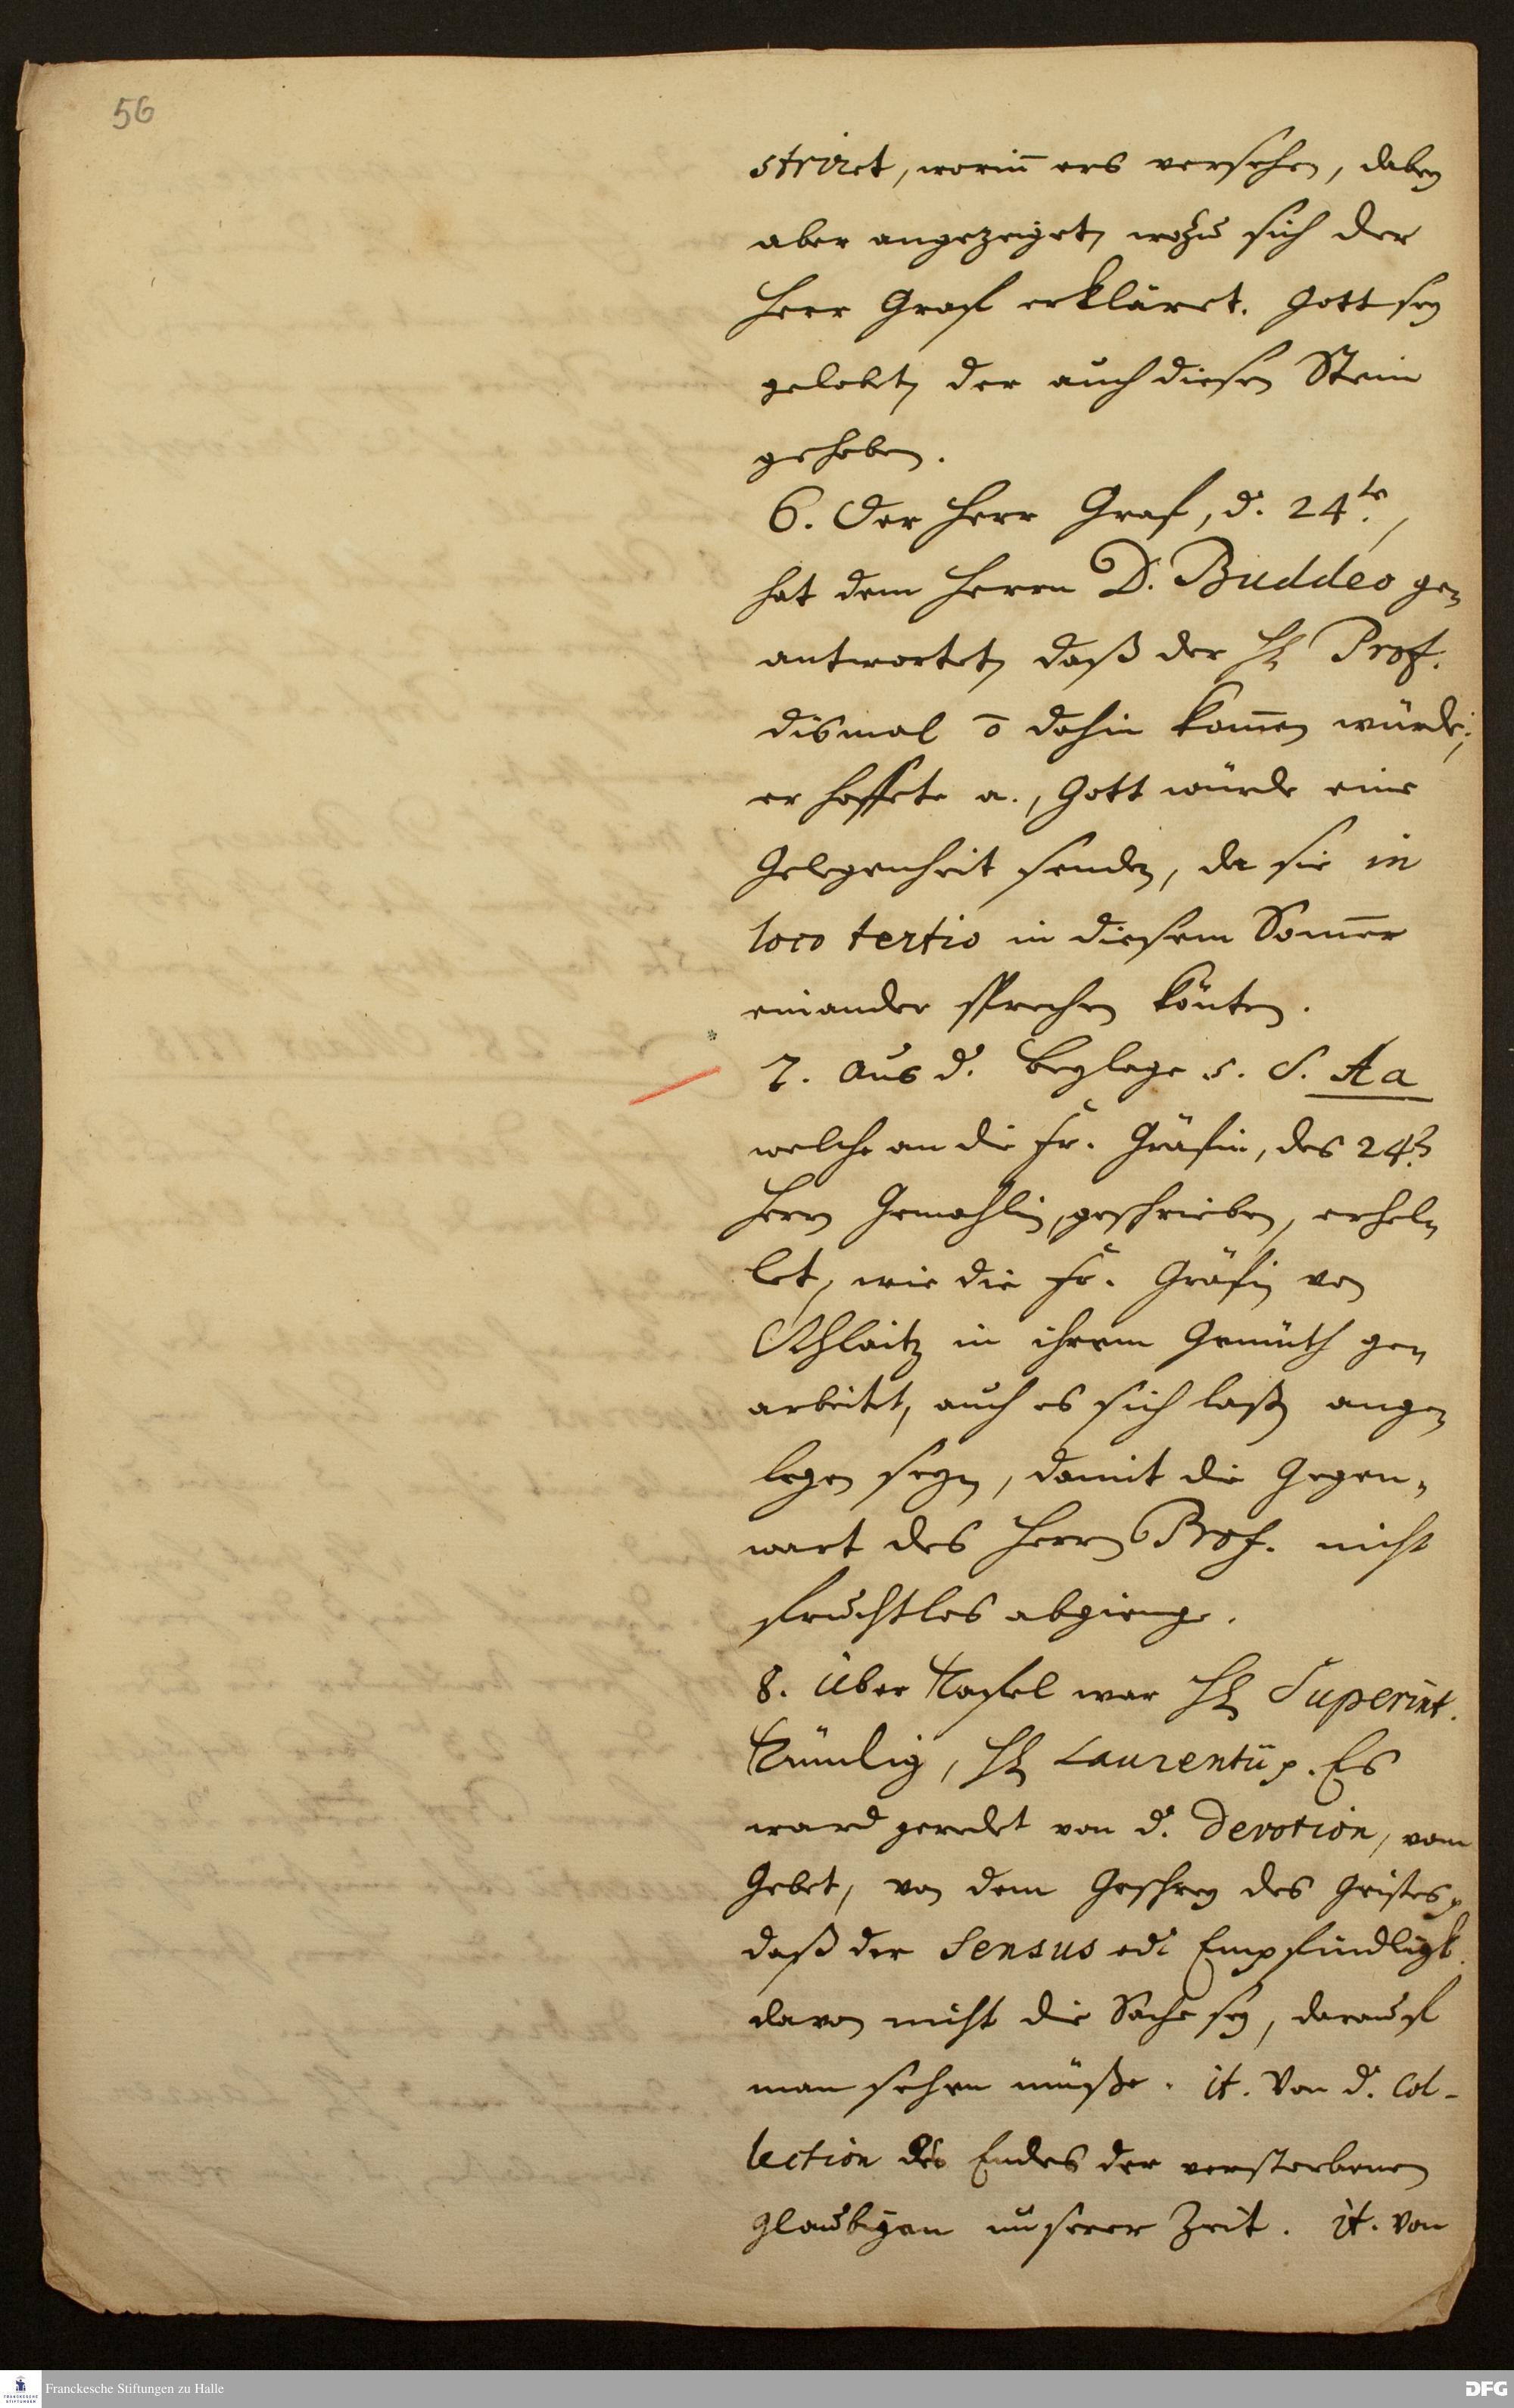 56
striret, worin̄ ers versehen, dabey
aber angezeiget, wozu sich der
Herr Graf erkläret. Gott sey
gelobet, der auch diesen Stein
gehoben.
6. Der Herr Graf, d. 24te,
hat dem Herrn D. Buddeo ge-
antwortet, daß der H. Prof.
dismal ō dahin kom̄en würde;
er hoffete a., Gott würde eine
Gelegenheit senden, da sie in
loco tertio in diesem Som̄er
einander sprechen könten.
7. Aus d. Beylage s. S. Aa
welche an die Fr. Gräfin, des 24.
Herrn Gemahlin, geschrieben, erhel-
let, wie die Fr. Gräfin von
Schlaitz in ihrem Gemüth ge-
arbeitet, auch es sich laßen ange-
legen seyn, damit die Gegen-
wart des Herrn Prof. nicht
fruchtlos abgienge.
8. Über Tafel war H. Superint.
H. Laurentii p. Es
ward geredet von d. Devotion, vom
Gebet, von dem Geschrey des Geistes p
daß der Sensus od. Empfindligk.
davon nicht die Sache sey, darauf
man sehen müße. it. Von d. Col-
lection des Endes der verstorbenen
Glaubigen unserer Zeit. it. von
FRANCKESCHE STIFTUNGEN
Franckesche Stiftungen zu Halle
DFG